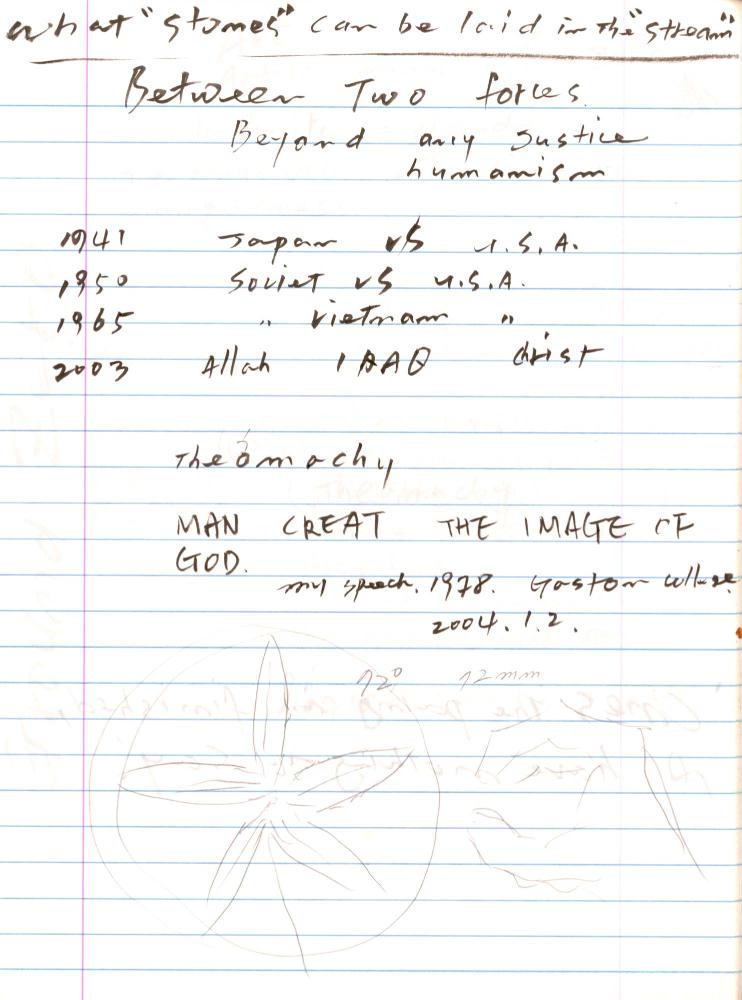 What "stones" can be laid in the "stream"
Between Two forces
Beyond any Justice
humanism
1941 Japan vs U.S.A.
1950 Soviet vs U.S.A.
1965 " Vietnam "
2003 Allah IRAQ Christ
Theomachy
MAN CREAT THE IMAGE OF
GOD.
my speech. 1978. Gaston College
2004.1.2.
72° 12mm